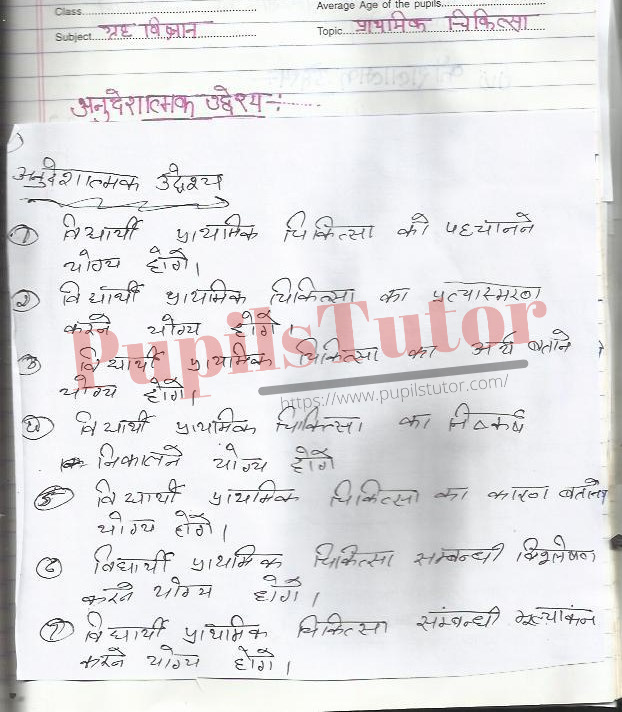 Class
Average Age of the pupils
Subject ग्रह विज्ञान
Topic प्राथमिक चिकित्सा
अनुदेशात्मक उद्देश्य :-
अनुदेशात्मक उद्देश्य
① विद्यार्थी प्राथमिक चिकित्सा को पहचानने
योग्य होंगे।
② विद्यार्थी प्राथमिक चिकित्सा का प्रत्यास्मरण
करने योग्य होंगे।
③ विद्यार्थी प्राथमिक चिकित्सा का अर्थ बताने
योग्य होंगे।
PupilsTutor
https://www.pupilstutor.com/
④ विद्यार्थी प्राथमिक चिकित्सा का निष्कर्ष
निकालने योग्य होंगे
⑤ विद्यार्थी प्राथमिक चिकित्सा का कारण बताने
योग्य होंगे।
⑥ विद्यार्थी प्राथमिक चिकित्सा सम्बन्धी विश्लेषण
करने योग्य होंगे।
⑦ विद्यार्थी प्राथमिक चिकित्सा संम्बन्धी मूल्यांकन
करने योग्य होंगे।